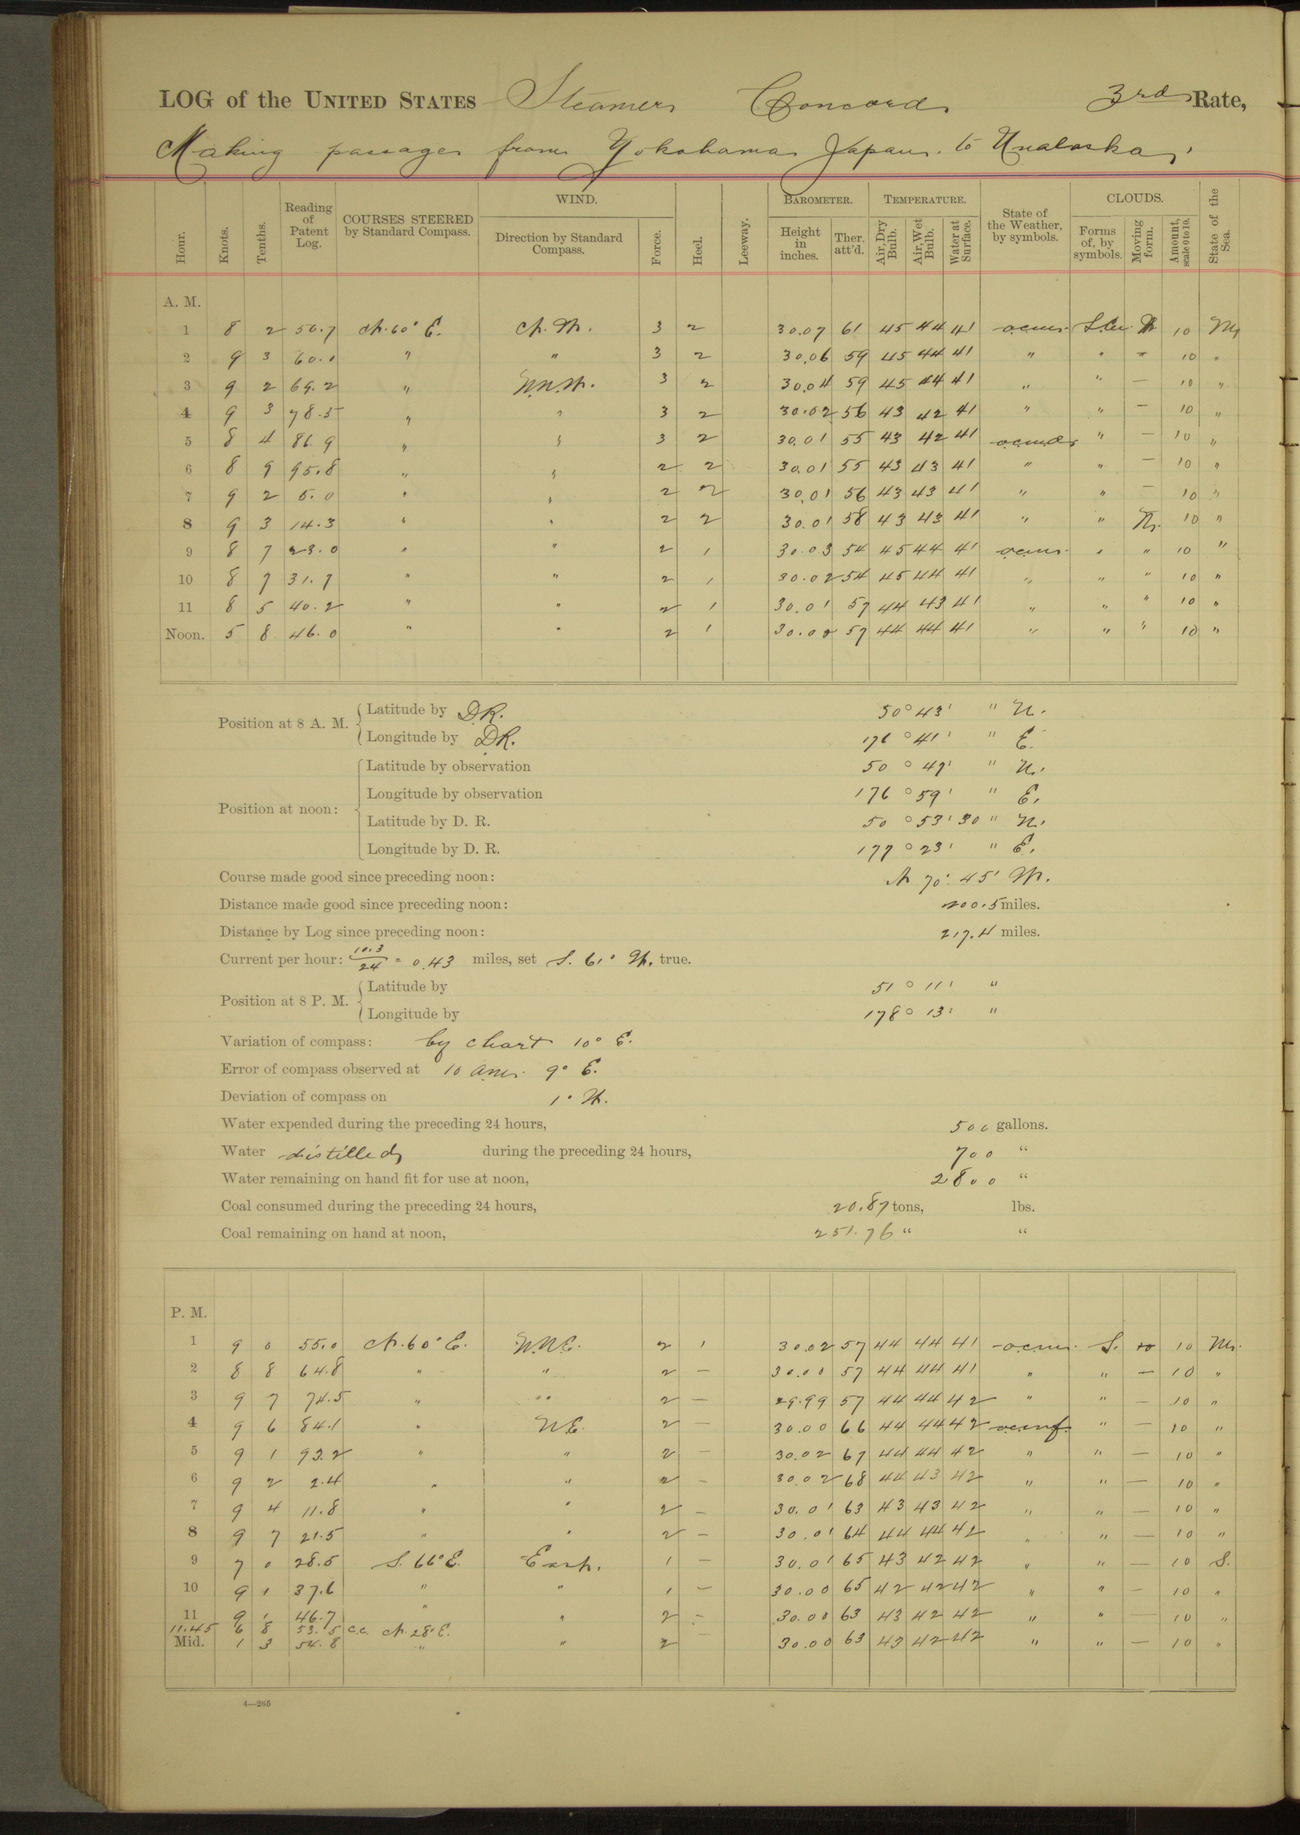 LOG of the UNITED STATES Steamer Concord 3rd Rate,
Making passage from Yokohama Japan. to Unalaska,
Hour. Knots. Tenths. Reading of Patent Log. COURSES STEERED by Standard Compass. WIND. Direction by Standard Compass. Force. Heel. Leeway. BAROMETER. Height in inches. Ther. att'd. TEMPERATURE. Air, Dry Bulb. Air, Wet Bulb. Water at Surface. State of the Weather, by symbols. CLOUDS. Forms of, by symbols. Moving form. Amount, scale 0 to 10. State of the Sea.
A. M.
1 8 2 50.7 N. 60° E. N. W. 3 2 30.07 61 45 44 41 ocm. 10 M
2 9 3 60.0 " " 3 2 30.06 59 45 44 41 " " 10 "
3 9 2 69.2 " W.N.W. 3 2 30.04 59 45 44 41 " " — 10 "
4 9 3 78.5 " " 3 2 30.02 56 43 42 41 " " — 10 "
5 8 4 86.9 " " 3 2 30.01 55 43 42 41 ocmd " — 10 "
6 8 9 95.8 " " 2 2 30.01 55 43 43 41 " " — 10 "
7 9 2 5.0 " " 2 2 30.01 56 43 43 41 " " — 10 "
8 9 3 14.3 " " 2 2 30.01 58 43 43 41 " " 10 "
9 8 7 23.0 " " 2 1 30.03 54 45 44 41 ocm. " " 10 "
10 8 7 31.7 " " 2 1 30.02 54 45 44 41 " " " 10 "
11 8 5 40.2 " " 2 1 30.01 57 44 43 41 " " " 10 "
Noon. 5 8 46.0 " " 2 1 30.00 57 44 44 41 " " " 10 "
Position at 8 A. M. Latitude by D.R. 50° 43' " N.
Longitude by D.R. 176° 41' " E.
Position at noon: Latitude by observation 50° 47' " N.
Longitude by observation 176° 59' " E.
Latitude by D. R. 50° 53' 30" N.
Longitude by D. R. 177° 23' " E.
Course made good since preceding noon: N 70° 45' W.
Distance made good since preceding noon: 200.5 miles.
Distance by Log since preceding noon: 217.4 miles.
Current per hour: 10.3/24 = 0.43 miles, set S. 61° W. true.
Position at 8 P. M. Latitude by 51° 11' "
Longitude by 178° 13' "
Variation of compass: by chart 10° E.
Error of compass observed at 10 am. 9° E.
Deviation of compass on 1° W.
Water expended during the preceding 24 hours, 500 gallons.
Water distilled during the preceding 24 hours, 700 "
Water remaining on hand fit for use at noon, 2800 "
Coal consumed during the preceding 24 hours, 20.87 tons, lbs.
Coal remaining on hand at noon, 251.76 " "
P. M.
1 9 0 55.0 N. 60° E. N.N.E. 2 1 30.02 57 44 44 41 ocm. S. 10 M.
2 8 8 64.8 " " 2 — 30.00 57 44 44 41 " " — 10 "
3 9 7 74.5 " " 2 — 29.99 57 44 44 42 " " — 10 "
4 9 6 84.1 " N.E. 2 — 30.00 66 44 44 42 ocmf. " — 10 "
5 9 1 93.2 " " 2 — 30.02 67 44 44 42 " " — 10 "
6 9 2 2.4 " " 2 — 30.02 68 44 43 42 " " — 10 "
7 9 4 11.8 " " 2 — 30.01 63 43 43 42 " " — 10 "
8 9 7 21.5 " " 2 — 30.01 64 44 44 42 " " — 10 "
9 7 0 28.5 S. 66° E. East. 1 — 30.01 65 43 42 42 " " — 10 S.
10 9 1 37.6 " " 1 — 30.00 65 42 42 42 " " — 10 "
11 9 1 46.7 " " 2 — 30.00 63 43 42 42 " " — 10 "
11.45 6 8 53.5 c.c. N. 28° E.
Mid. 1 3 54.8 " " 2 — 30.00 63 43 42 42 " " — 10 "
4—265